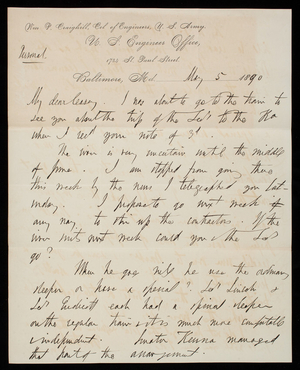 Wm. P. Craighill, Col. of Engineers, U. S. Army.
U. S. Engineer Office,
Personal. 1725 St. Paul Street
Baltimore, Md. May 5 1890
My dear Casey, I was about to go to the train to
see you about the trip of the Sec'y to the Ka
when I rec'd your note of 3d.
The river is very uncertain until the middle
of June. I am stopped from going there
this week by the news I telegraphed you Sat-
urday. I propose to go next week
any way, to stir up the contractors. If the
river suits next week could you & the Sec'y
go?
When he goes will he use the ordinary
sleeper or have a special? Sec'y Lincoln &
Sec'y Endicott each had a special sleeper
on the regular train & it is much more comfortable
& independent. Senator Kenna managed
that part of the arrangement.